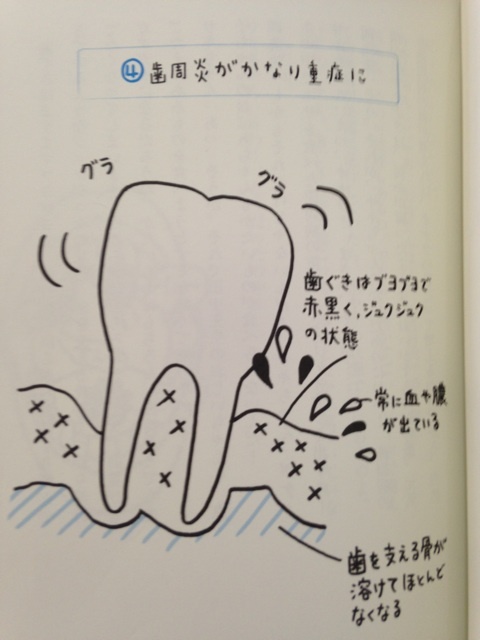 ④歯周炎がかなり重症に
グラ
グラ
歯ぐきはブヨブヨで
赤黒く、ジュクジュク
の状態
常に血や膿
が出ている
歯を支える骨が
溶けてほとんど
なくなる